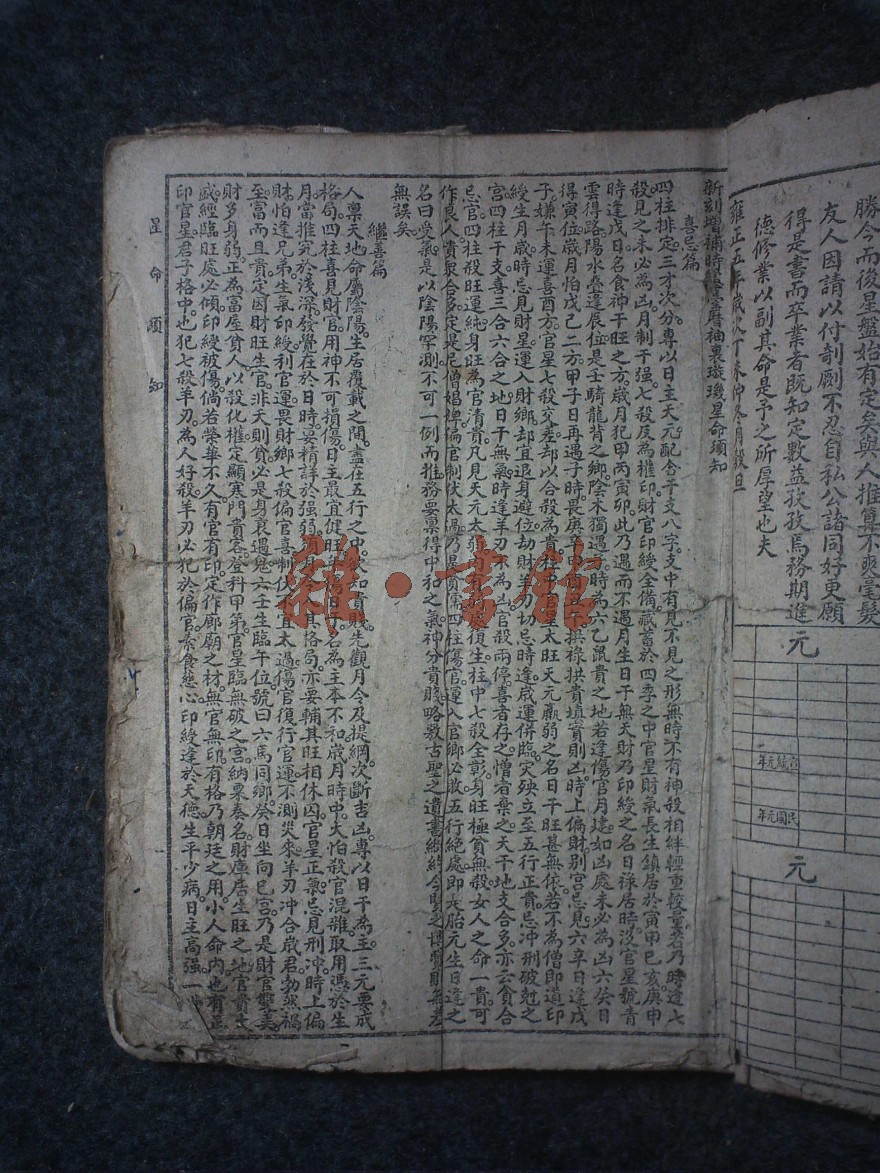 勝今而後星盤始有定矣與人推算不爽毫髮
友人因請以付剞劂不忍自私公諸同好更願
得是書而卒業者既知定數益孜孜焉務期進
德修業以副其命是予之所厚望也夫
雍正五年歲次丁未仲冬月穀旦
元
民國元年
元
新刻增補時憲臺曆袖裏璇璣星命須知
喜忌篇
四柱排定三才次分專以日主天元配合干支八字支中有見不見之形無時不有神殺相絆輕重較量若乃時逢七
殺見之未必為凶月制干强七殺反為權印財官印綬全備藏蓄於四季之中官星財氣長生鎮居於寅申巳亥庚申
時逢戊日名食神干旺之方歲月犯甲丙寅卯此乃遇而不遇月生日干無天財乃印綬之名日祿居時沒官星號青
雲得路陽水疊逢辰位是壬騎龍背之鄉陰木獨遇子時為六乙鼠貴之地若逢傷官月建如凶處未必為凶六癸日
得寅位歲月怕戊己二方甲子日再遇子時畏庚辛申酉丑午拱祿拱貴填實則凶時上偏財別宮忌見六辛日逢戊
子嫌午未運喜酉方官星七殺交差却以合殺為貴柱中官星太旺天元羸弱之名日干旺甚無依若不為僧即道印
綬生月歲時忌見財星運入財鄉却宜退身避位劫財羊刃切忌時逢歲運併臨灾殃立至五行正貴忌冲刑破尅之
宮四柱干支喜三合六合之地日干無氣時逢羊刃不為凶官殺兩停喜者存之憎者棄之天干地支合多亦云貪合
忌官四柱殺旺運純身旺為官清貴凡見天元太弱內有弱處復生柱中七殺全彰身旺極貧無殺女人之命一貴可
作良人貴衆合多定是尼僧娼婢偏官制伏太過乃是貧儒四柱傷官運入官鄉必敗五行絕處即是胎元生日逢之
名曰受氣是以陰陽罕測不可一例而推務要稟得中和之氣神分貴賤略敷古聖之遺書縱約今賢之博覽則無差
無誤矣
繼善篇
人稟天地命屬陰陽生居覆載之間盡在五行之中欲知貴賤先觀月令及提綱次斷吉凶專以日干為主三元要成
格局四柱喜見財官用神不可損傷日主最宜健旺年傷日干名為主本不和歲月時中大怕殺官混雜取用憑於生
月當推究於淺深發覺在於日時要精詳於強弱官星正氣忌見刑冲時上偏
財怕逢兄弟生氣印綬利官運畏財鄉七殺偏官喜制伏不宜太過傷官復行官運不測災來羊刃冲合歲君勃然禍
至富而且貴定因財旺生官非夭則貧必是身衰遇鬼六壬生臨午位號曰六馬同鄉癸日坐向巳宮乃是財官雙美
財多身弱正為富屋貧人以殺化權定顯寒門貴客登科甲第官星臨無破之宮納粟奏名財庫居生旺之地官貴太
盛纔臨旺處必傾印綬被傷倘若榮華不久有官有印定作廊廟之材無官無印有格乃朝廷之用小人命內也有正
印官星君子格中也犯七殺羊刃為人好殺羊刃必犯於偏官素食慈心印綬逢於天德生平少病日主高强一
星命須知
雜·書館